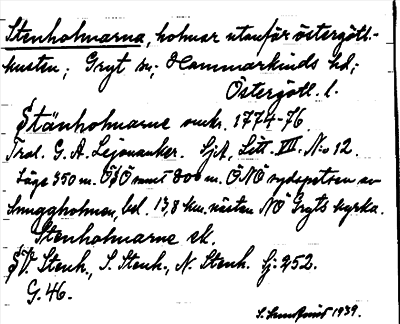 Stenholmarna, holmar utanför östergötl.-
kusten; Gryt sn; Hammarkinds hd;
Östergötl. l.
Stänholmarne omkr. 1774-76
Trol. G. A. Lejonanker. SjA, Litt. VII. No 12.
Läge 350 m. OSO samt 800 m. ONO sydspetsen av
Smuggholmen, bel. 13,8 km. nästan NO Gryts kyrka.
Stenholmarne ek.
V. Stenh., S. Stenh., N. Stenh. Sj: 252.
G. 46.
1939.